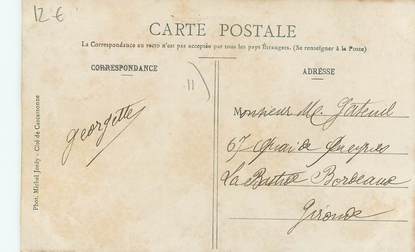 12 €
CARTE POSTALE
La Correspondance au recto n'est pas acceptée par tous les pays Étrangers. (Se renseigner à la Poste)
CORRESPONDANCE
ADRESSE
11
georgette
Monsieur
67 Quai de Queyries
La Bastide Bordeaux
Gironde
Phot. Michel Jordy - Cité de Carcassonne